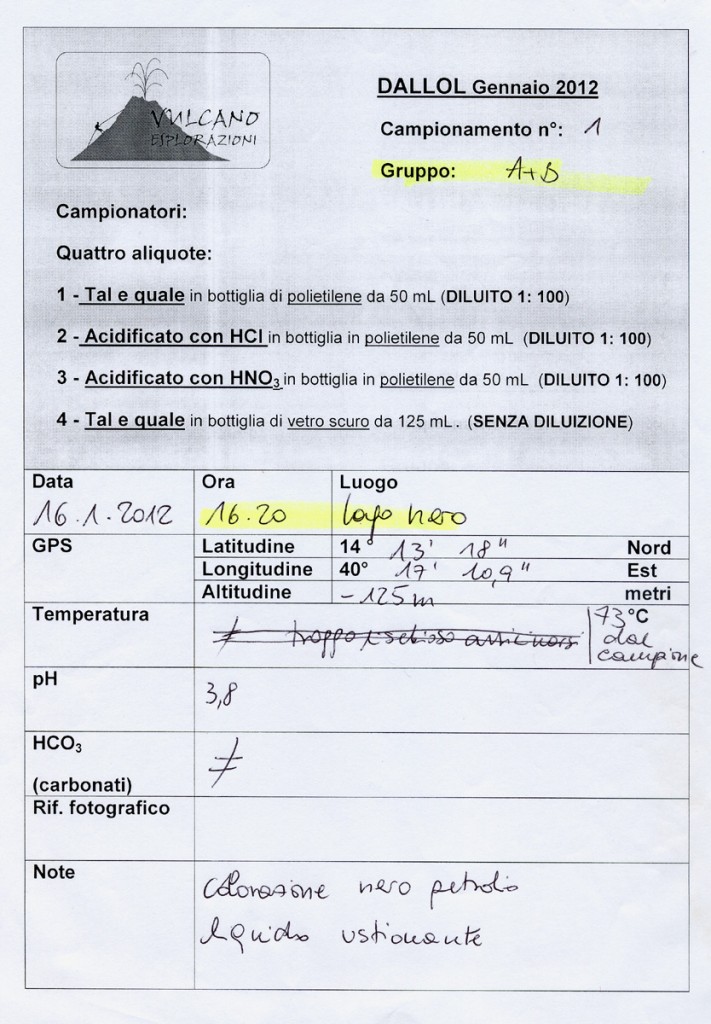 VULCANO
ESPLORAZIONI
DALLOL Gennaio 2012
Campionamento n°: 1
Gruppo: A+B
Campionatori:
Quattro aliquote:
1 - Tal e quale in bottiglia di polietilene da 50 mL (DILUITO 1: 100)
2 - Acidificato con HCl in bottiglia in polietilene da 50 mL (DILUITO 1: 100)
3 - Acidificato con HNO₃ in bottiglia in polietilene da 50 mL (DILUITO 1: 100)
4 - Tal e quale in bottiglia di vetro scuro da 125 mL. (SENZA DILUIZIONE)
Data Ora Luogo
16.1.2012 16.20 lago nero
GPS Latitudine 14° 13' 18" Nord
Longitudine 40° 17' 10,9" Est
Altitudine -125m metri
Temperatura ≠ troppo 73°C
dal
campione
pH
3,8
HCO₃
≠
(carbonati)
Rif. fotografico
Note
colorazione nero petrolio
liquido ustionante